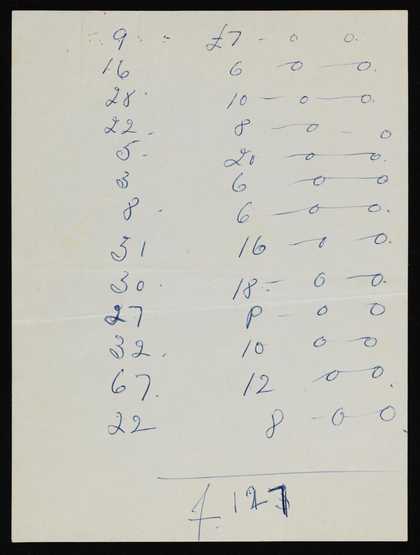 9 - £7 - 0 0.
16 6 - 0 - 0.
28 10 - 0 - 0.
22 - 8 - 0 - 0
5 - 20 - 0 - 0.
3 6 - 0 - 0
8 - 6 - 0 - 0.
31 16 - 0 - 0.
30. 18 - 0 - 0.
27 P - 0 0
32. 10 0 - 0
67. 12 0 - 0
22 8 - 0 - 0
£. 127